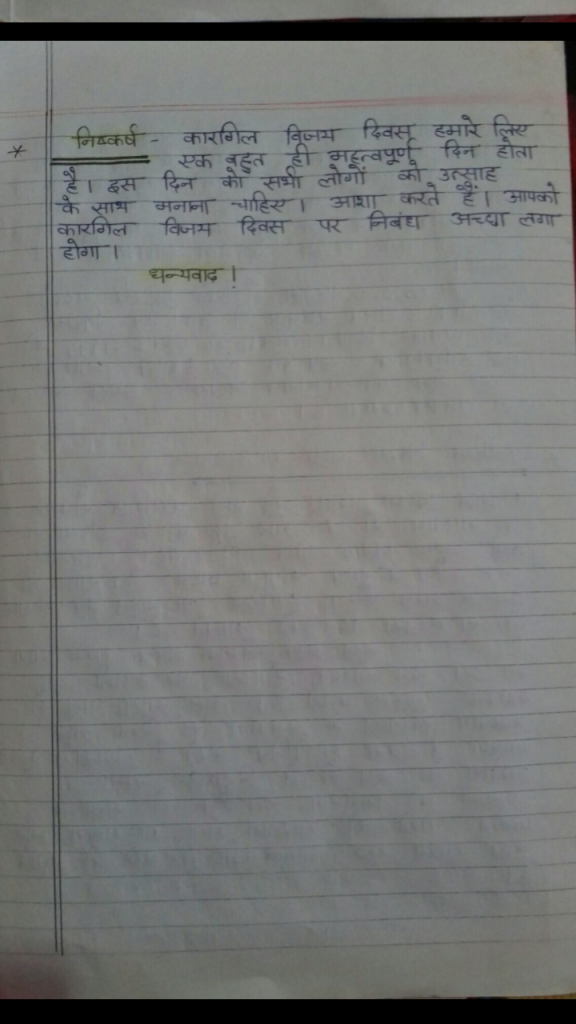 * निष्कर्ष - कारगिल विजय दिवस हमारे लिए
एक बहुत ही महत्वपूर्ण दिन होता
है। इस दिन को सभी लोगों को उत्साह
के साथ मनाना चाहिए। आशा करते हैं। आपको
कारगिल विजय दिवस पर निबंध अच्छा लगा
होगा।
धन्यवाद!